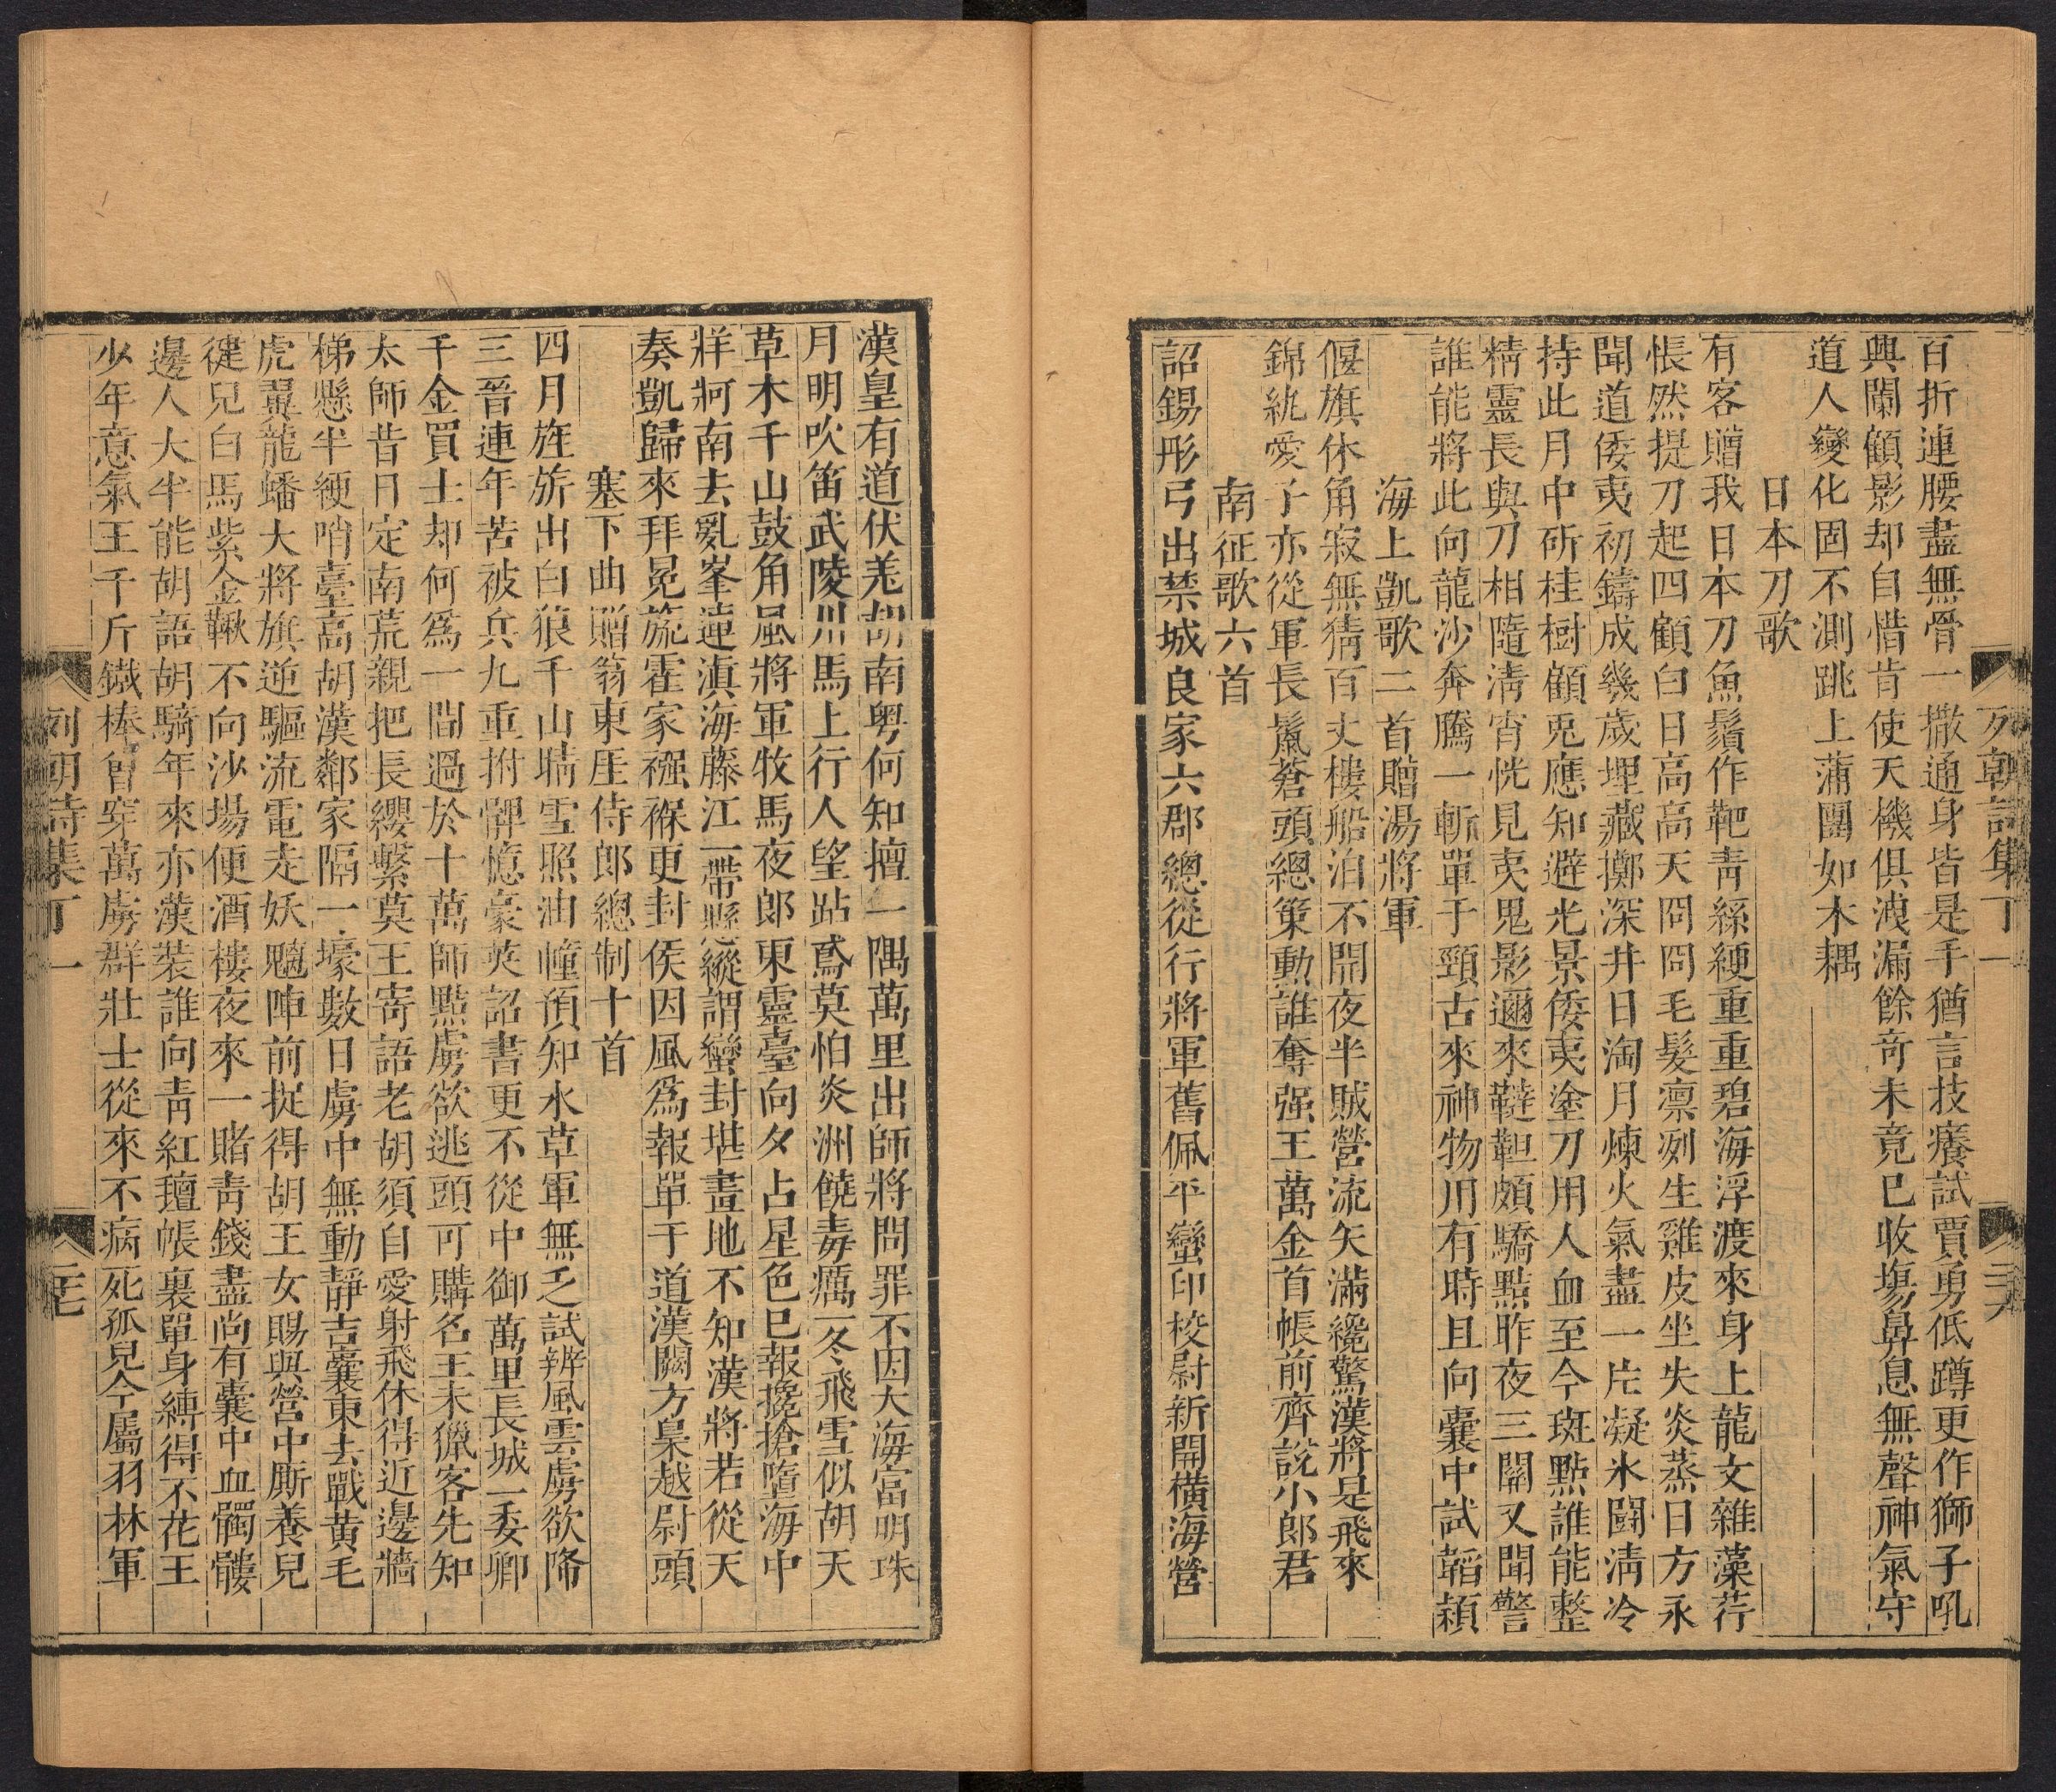 列朝詩集丁一
百折連腰盡無骨一撒通身皆是手猶言技癢試賈勇低蹲更作獅子吼
興闌顧影却自惜肯使天機俱洩漏餘竒未竟已收塲鼻息無聲神氣守
道人變化固不測跳上蒲團如木耦
日本刀歌
有客贈我日本刀魚鬚作靶青絲綆重重碧海浮渡來身上龍文雜藻荇
悵然提刀起四顧白日高高天冏冏毛髮凛冽生雞皮坐失炎蒸日方永
聞道倭夷初鑄成幾歲埋藏擲深井日淘月煉火氣盡一片凝氷鬬清冷
持此月中斫桂樹顧兎應知避光景倭夷塗刀用人血至今斑點誰能整
精靈長與刀相隨清宵恍見夷鬼影邇來韃靼頗驕黠昨夜三關又聞警
誰能將此向龍沙奔騰一斬單于頸古來神物用有時且向囊中試韜穎
海上凱歌二首贈湯將軍
偃旗休角寂無猜百丈樓船泊不開夜半賊營流矢滿纔驚漢將是飛來
錦紈愛子亦從軍長鬣蒼頭總䇿勳誰奪强王萬金首帳前齊說小郎君
南征歌六首
詔錫彤弓出禁城良家六郡總從行將軍舊佩平蠻印校尉新開橫海營
漢皇有道伏羌胡南粤何知擅一隅萬里出師將問罪不因大海富明珠
月明吹笛武陵川馬上行人望跕鳶莫怕炎洲饒毒癘一冬飛雪似胡天
草木千山鼓角風將軍牧馬夜郎東靈臺向夕占星色已報攙搶墮海中
牂牁南去亂峯連滇海藤江一帶縣縱謂蠻封堪畫地不知漢將若從天
奏凱歸來拜冕旒霍家襁褓更封侯因風爲報單于道漢闕方梟越尉頭
塞下曲贈翁東厓侍郎總制十首
四月旌旂出白狼千山晴雪照油幢預知水草軍無乏試辨風雲虜欲降
三晉連年苦被兵九重拊髀憶豪英詔書更不從中御萬里長城一委卿
千金買士却何爲一間過於十萬師點虜欲逃頭可購名王未獵客先知
太師昔日定南荒親把長纓繫莫王寄語老胡須自愛射飛休得近邊牆
梯懸半綆哨臺高胡漢鄰家隔一壕數日虜中無動靜吉囊東去戰黄毛
虎翼龍蟠大將旗逆驅流電走妖魑陣前捉得胡王女賜與營中厮養兒
健兒白馬紫金鞦不向沙場便酒樓夜來一賭青錢盡尚有囊中血髑髏
邊人大半能胡語胡騎年來亦漢裝誰向青紅氊帳裏單身縛得不花王
少年意氣王千斤鐵棒曾穿萬虜群壯士從來不病死孤兒今屬羽林軍
列朝詩集丁一